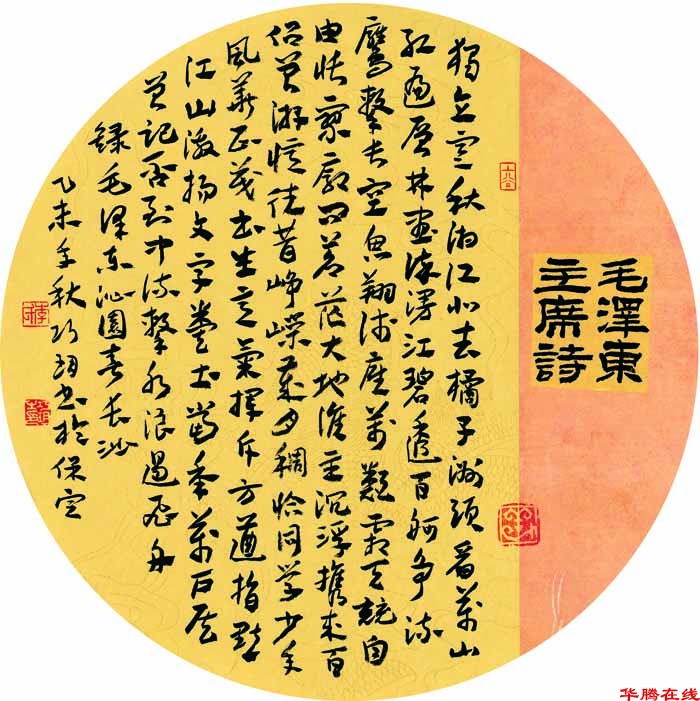 毛澤東
主席詩
獨立寒秋湘江北去橘子洲頭看萬山
紅遍層林盡染漫江碧透百舸争流
鷹擊長空魚翔淺底萬類霜天競自
由悵寥廓問蒼茫大地誰主沉浮攜來百
侣曾游憶往昔崢嶸歲月稠恰同學少年
風華正茂書生意氣揮斥方遒指點
江山激揚文字糞土當年萬户侯
曾記否到中流擊水浪遏飛舟
録毛澤东沁園春長沙
乙未年秋巧書於保定
华腾在线